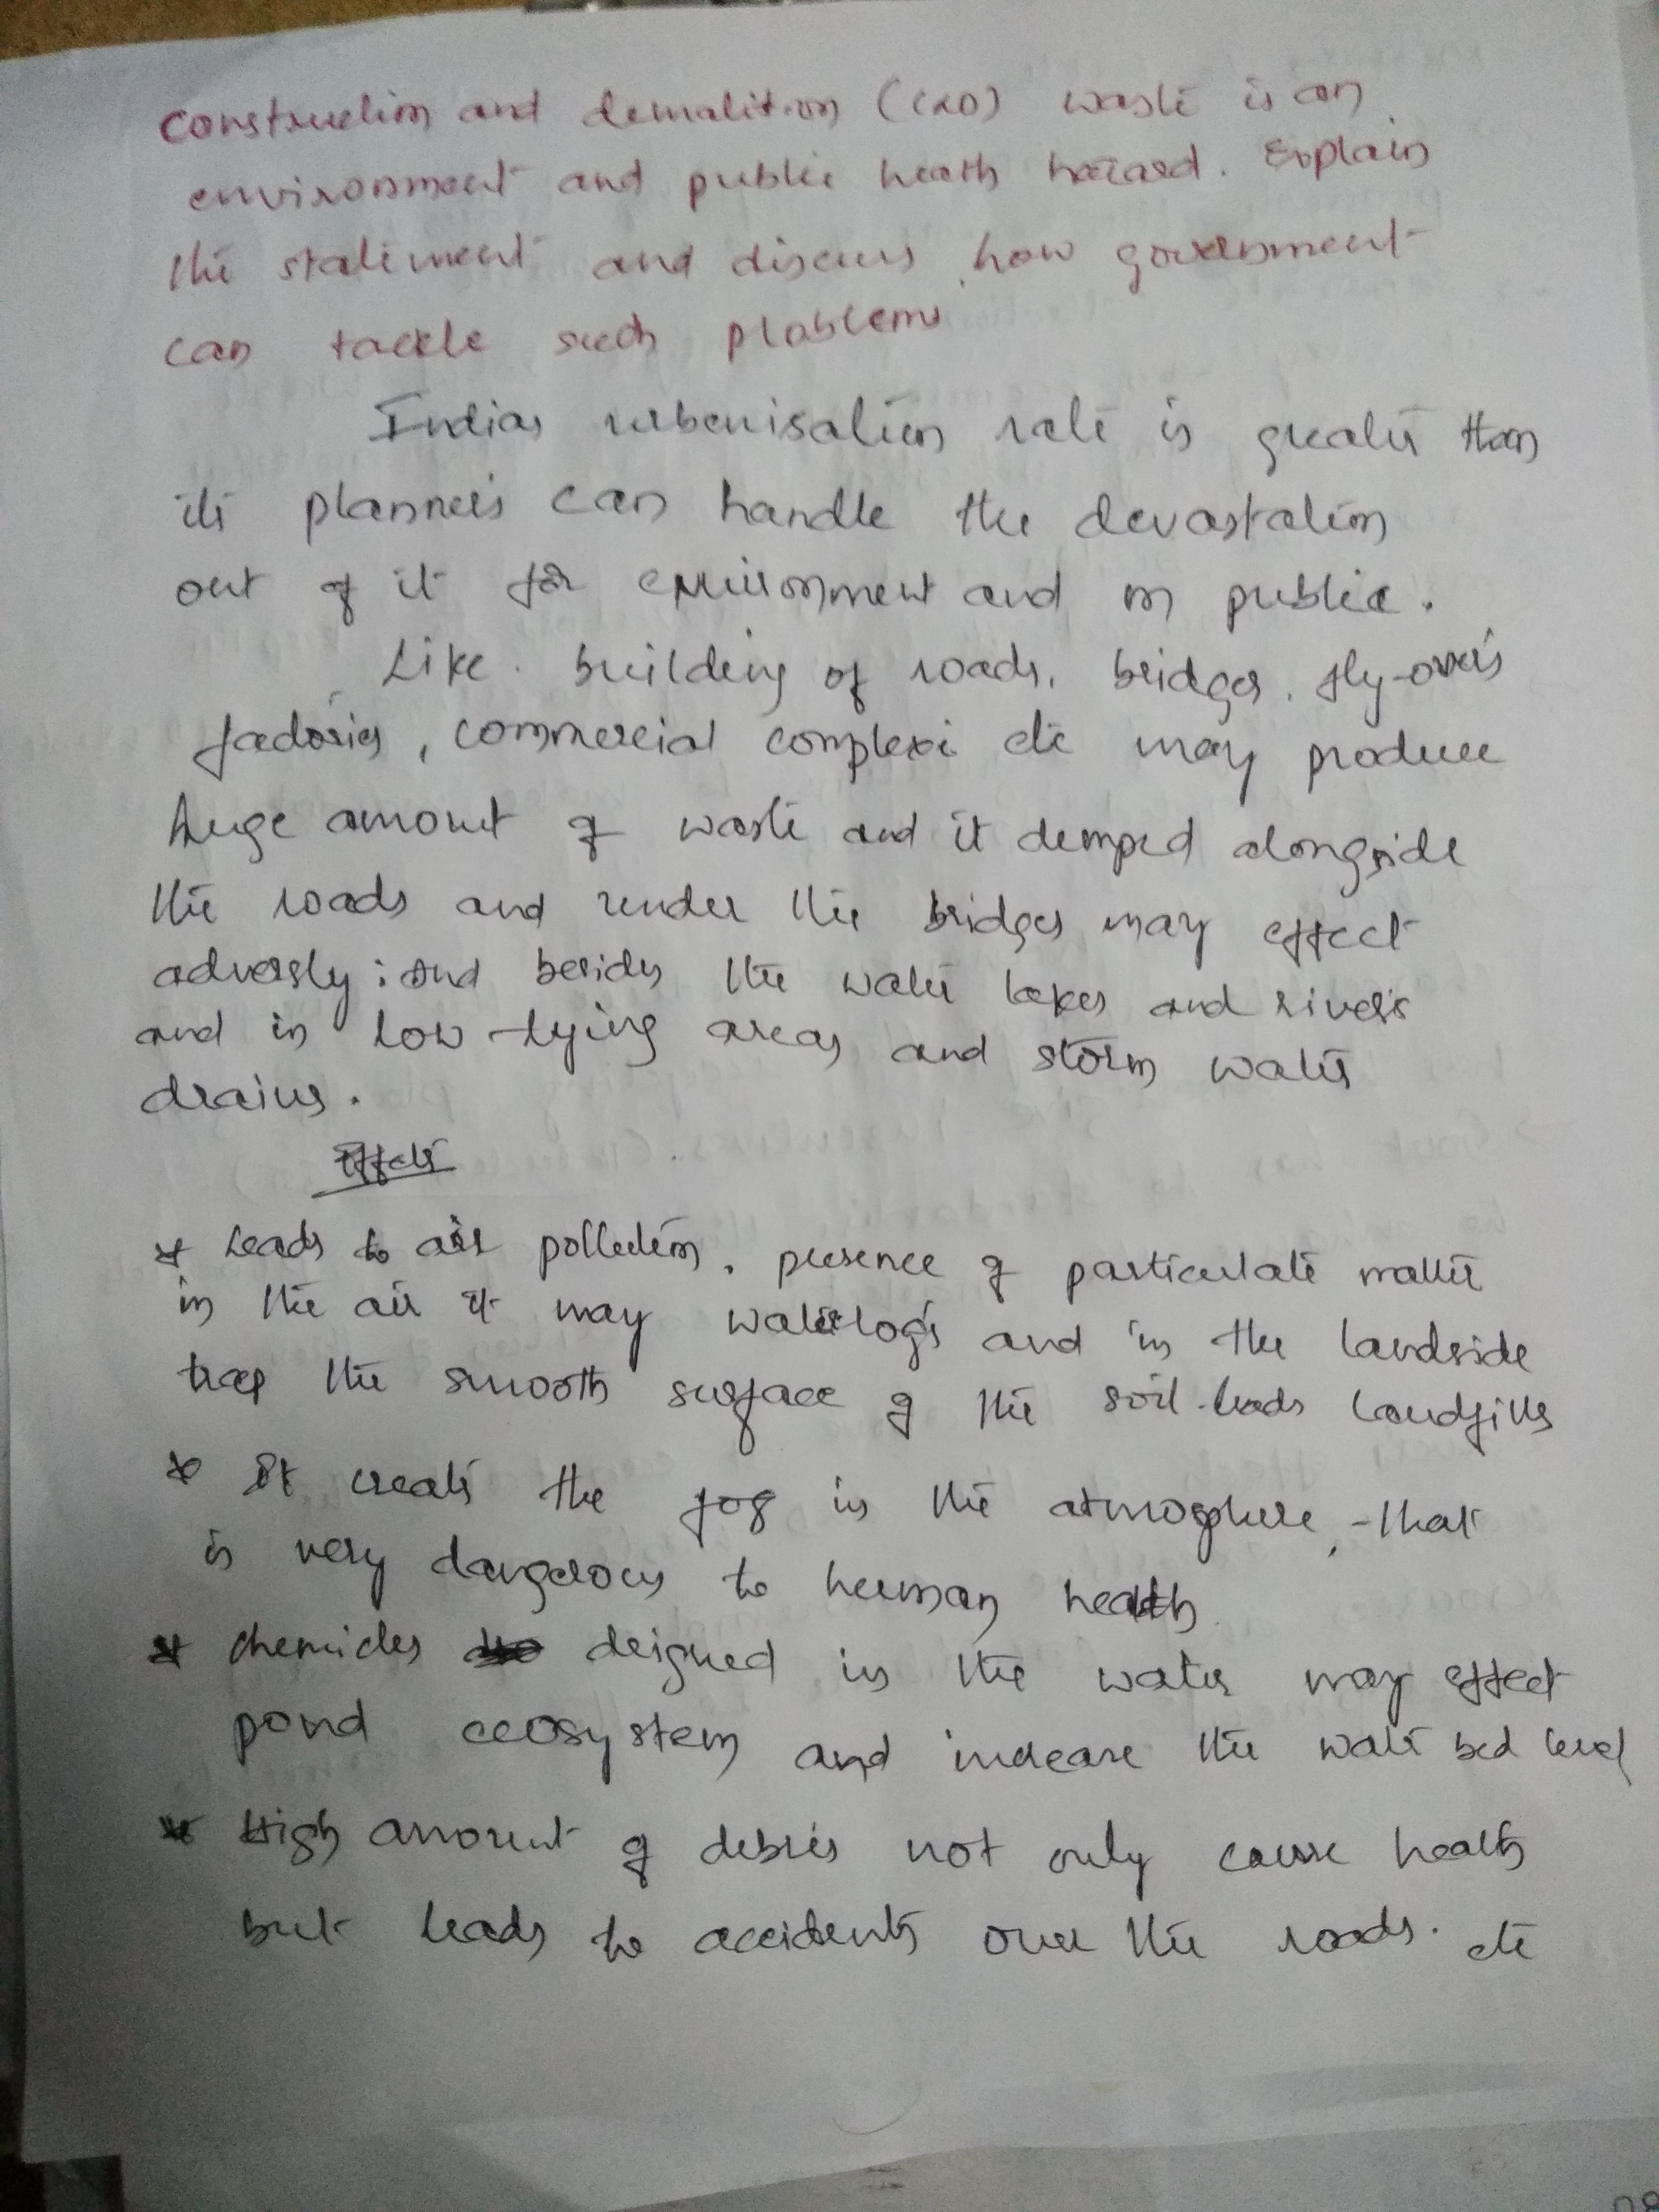 construction and demalition (C&D) waste is an
environment and public heath hazard. Explain
the statement and discuss how government
can tackle such ploblems
Indias urbanisation rate is greater than
its planners can handle the devastation
out of it for environment and on public.
Like building of roads, bridges, fly-overs
factories, commercial complexi etc may produce
huge amount of waste and it dumped alongside
the roads and under the bridges may effect
adversly; and besides the water lakes and rivers
and in low-lying areas and storm water
drains.
Effects
* Leads to air pollution, presence of particulate matter
in the air it may waterlogs and in the landside
trap the smooth surface of the soil leads landfills
* It creats the fog in the atmosphere, that
is very dangerous to human health
* chemicles deigned in the water may effect
pond ecosystem and increase the water bed level
* High amount of debris not only cause health
but leads to accidents over the roads. etc